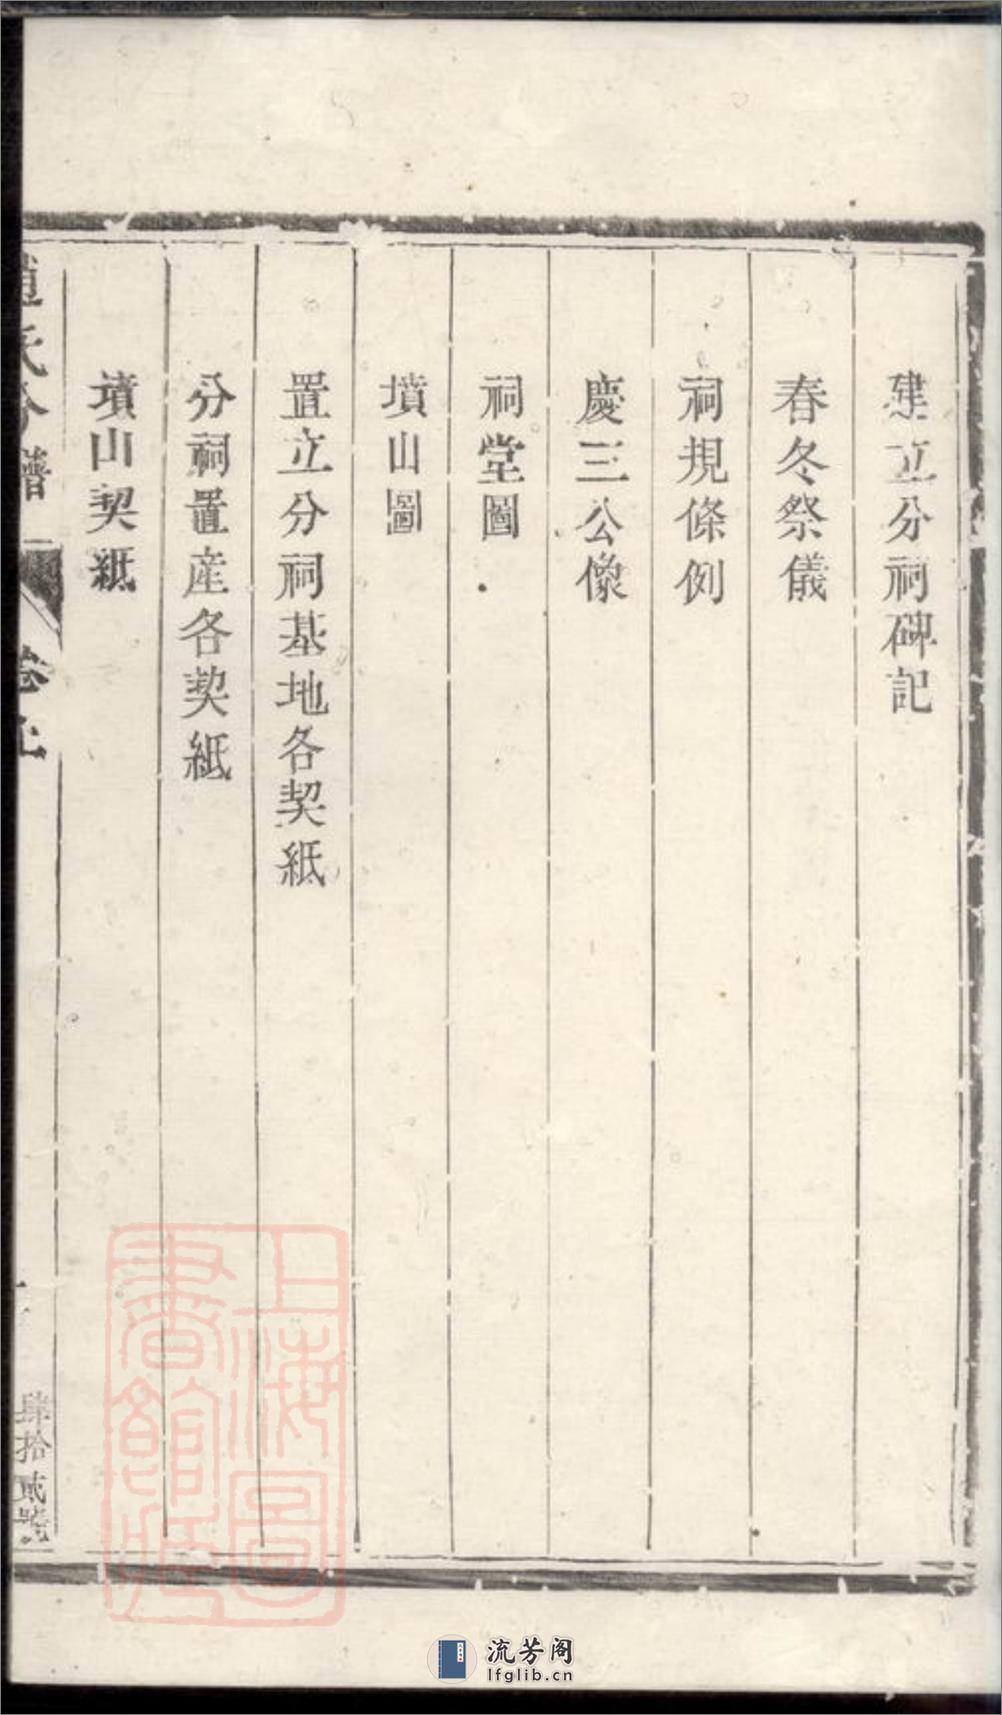 建立分祠碑記
春冬祭儀
祠規條例
慶三公像
祠堂圖
墳山圖
置立分祠基地各契紙
分祠置産各契紙
墳山契紙
趙氏分譜
卷上
肆拾貳號
上海圖書館藏
流芳阁
lfglib.cn